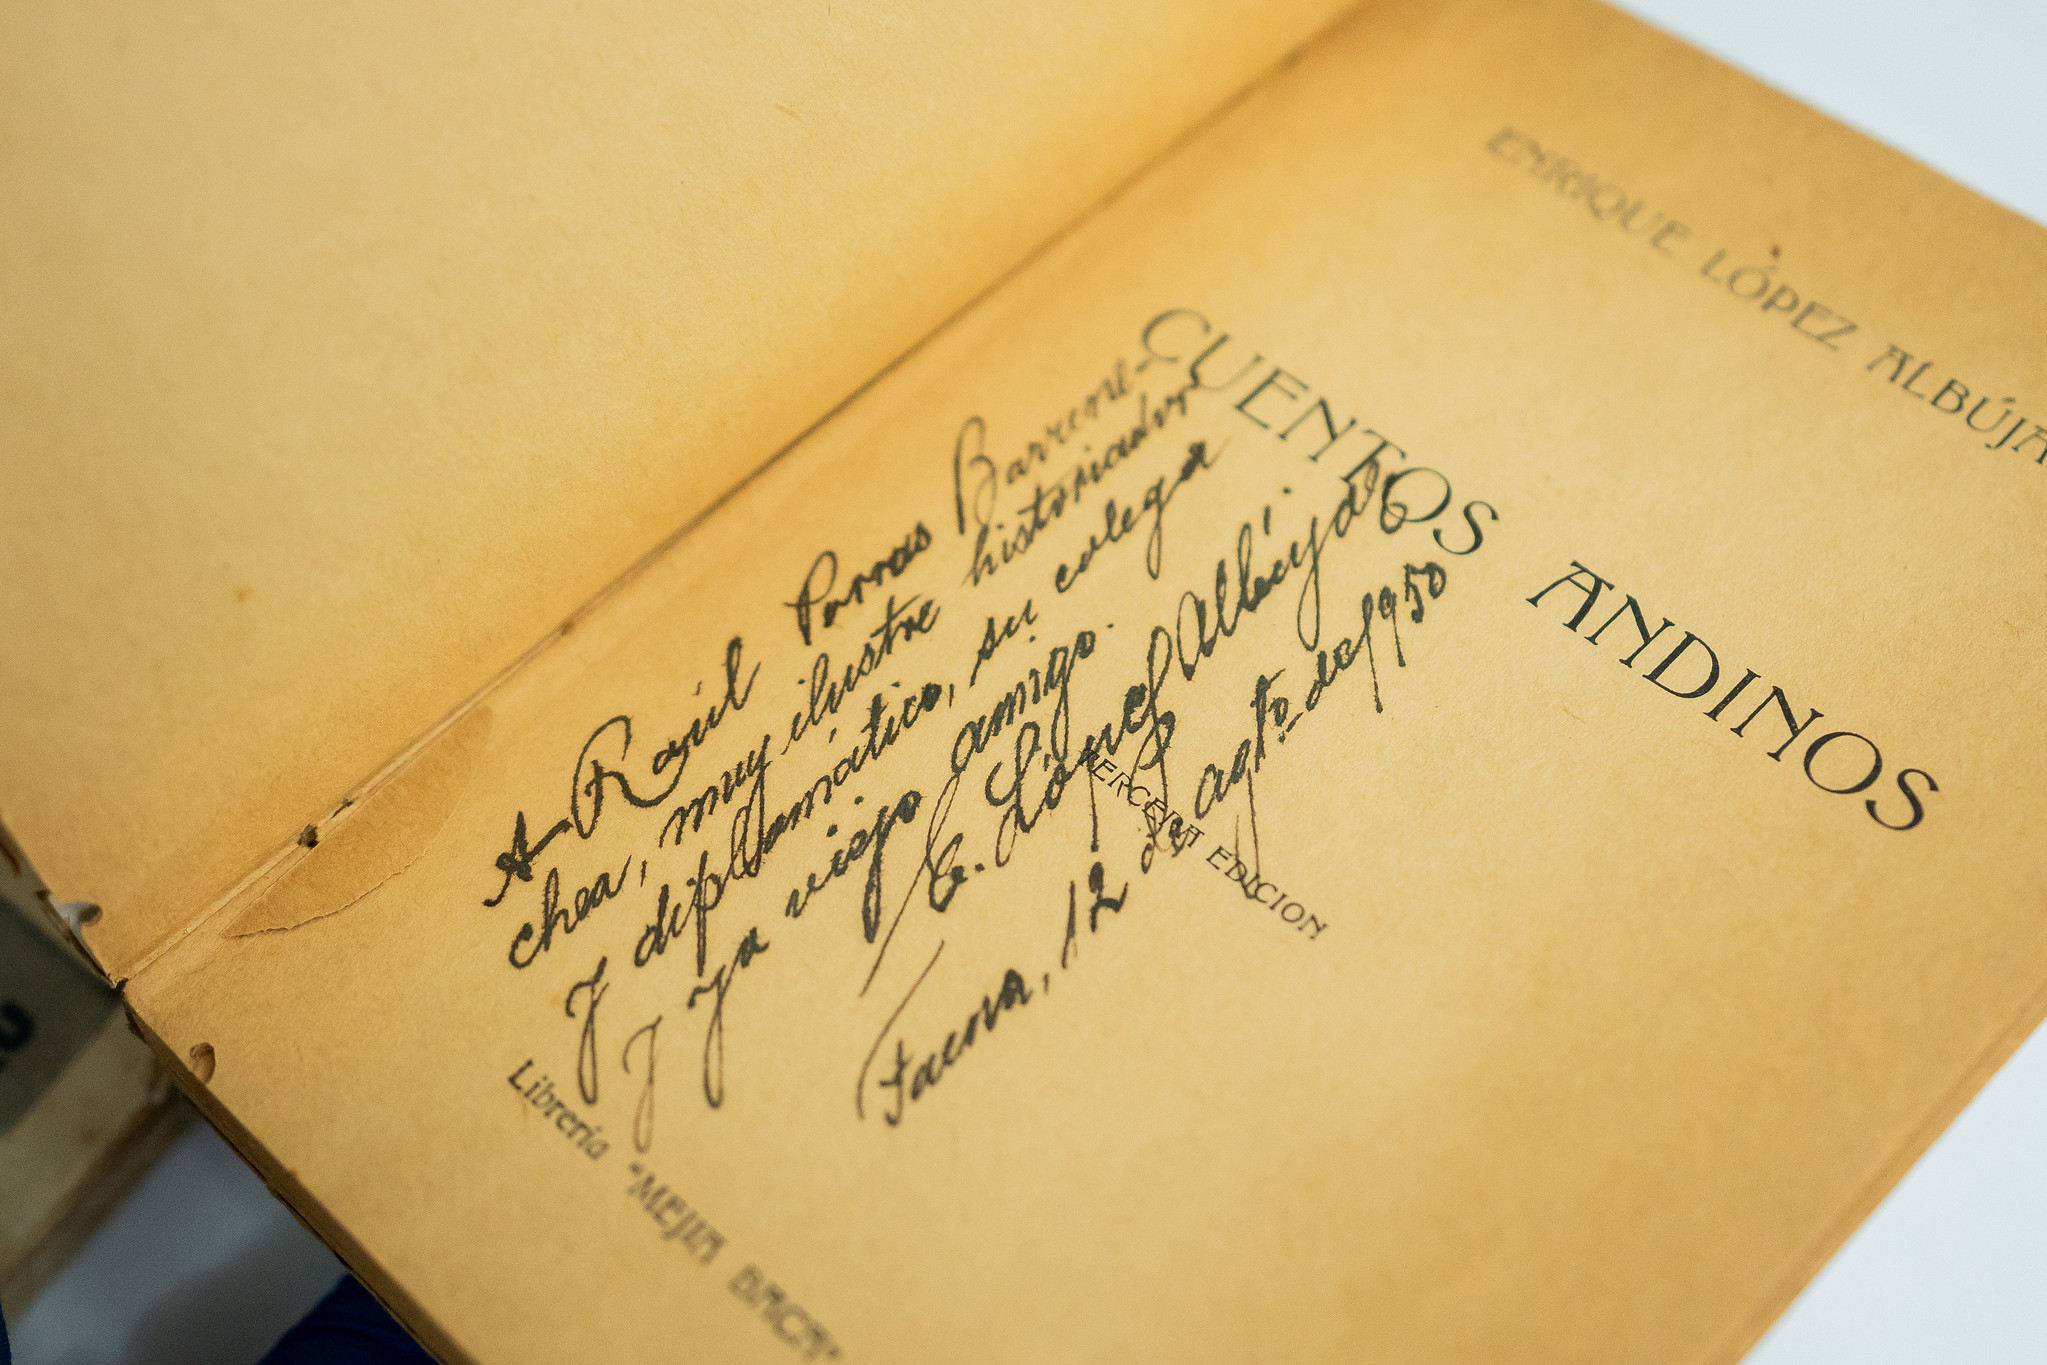 ENRIQUE LÓPEZ ALBÚJA
CUENTOS ANDINOS
TERCERA EDICION
A Raúl Porras Barrene-
chea, muy ilustre historiador
y diplomático, su colega
y ya viejo amigo.
E. López Albújar
Tacna, 12 de agto. de 1950
Librería "MEJIA BACA"